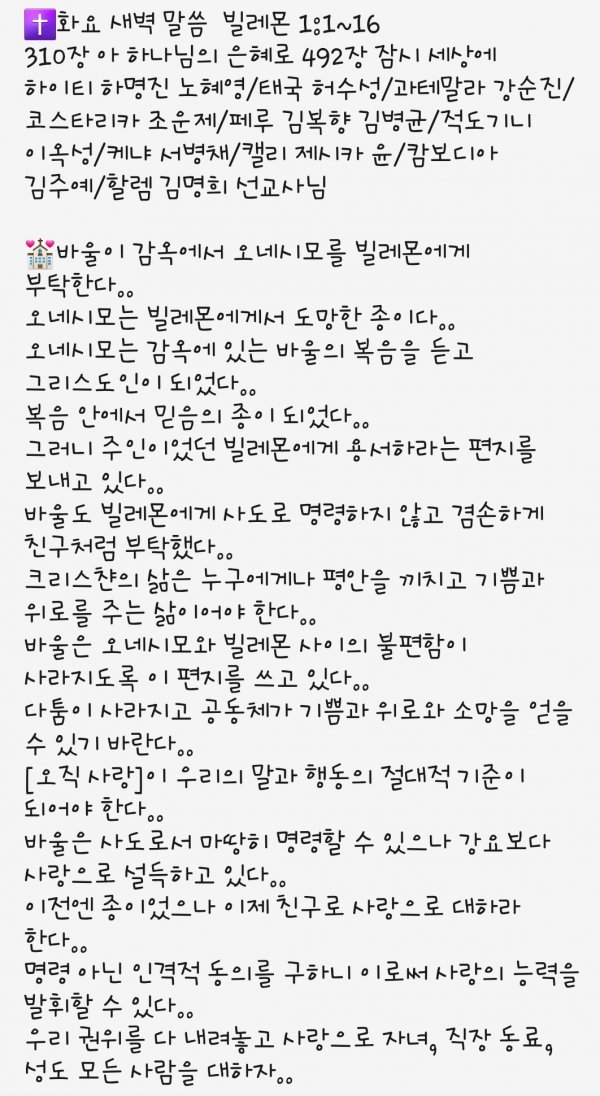 ✝️화요 새벽 말씀  빌레몬 1:1~16
310장 아 하나님의 은혜로 492장 잠시 세상에
하이티 하명진 노혜영/태국 허수성/과테말라 강순진/
코스타리카 조운제/페루 김복향 김병균/적도기니
이옥성/케냐 서병채/캘리 제시카 윤/캄보디아
김주예/할렘 김명희 선교사님

💒바울이 감옥에서 오네시모를 빌레몬에게
부탁한다..
오네시모는 빌레몬에게서 도망한 종이다..
오네시모는 감옥에 있는 바울의 복음을 듣고
그리스도인이 되었다..
복음 안에서 믿음의 종이 되었다..
그러니 주인이었던 빌레몬에게 용서하라는 편지를
보내고 있다..
바울도 빌레몬에게 사도로 명령하지 않고 겸손하게
친구처럼 부탁했다..
크리스챤의 삶은 누구에게나 평안을 끼치고 기쁨과
위로를 주는 삶이어야 한다..
바울은 오네시모와 빌레몬 사이의 불편함이
사라지도록 이 편지를 쓰고 있다..
다툼이 사라지고 공동체가 기쁨과 위로와 소망을 얻을
수 있기 바란다..
[오직 사랑]이 우리의 말과 행동의 절대적 기준이
되어야 한다..
바울은 사도로서 마땅히 명령할 수 있으나 강요보다
사랑으로 설득하고 있다..
이전엔 종이었으나 이제 친구로 사랑으로 대하라
한다..
명령 아닌 인격적 동의를 구하니 이로써 사랑의 능력을
발휘할 수 있다..
우리 권위를 다 내려놓고 사랑으로 자녀, 직장 동료,
성도 모든 사람을 대하자..